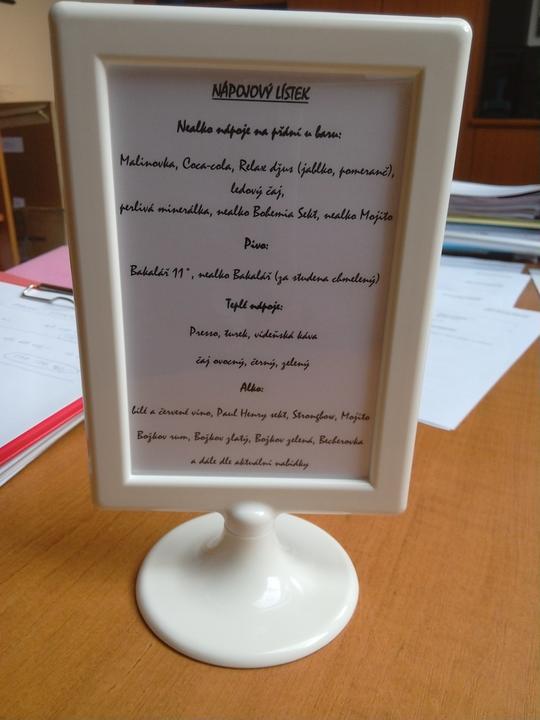 NÁPOJOVÝ LÍSTEK
Nealko nápoje na přání u baru:
Malinovka, Coca-cola, Relax džus (jablko, pomeranč),
ledový čaj,
perlivá minerálka, nealko Bohemia Sekt, nealko Mojito
Pivo:
Bakalář 11°, nealko Bakalář (za studena chmelený)
Teplé nápoje:
Presso, turek, vídeňská káva
čaj ovocný, černý, zelený
Alko:
bílé a červené víno, Paul Henry sekt, Strongbow, Mojito
Božkov rum, Božkov zlatý, Božkov zelená, Becherovka
a dále dle aktuální nabídky